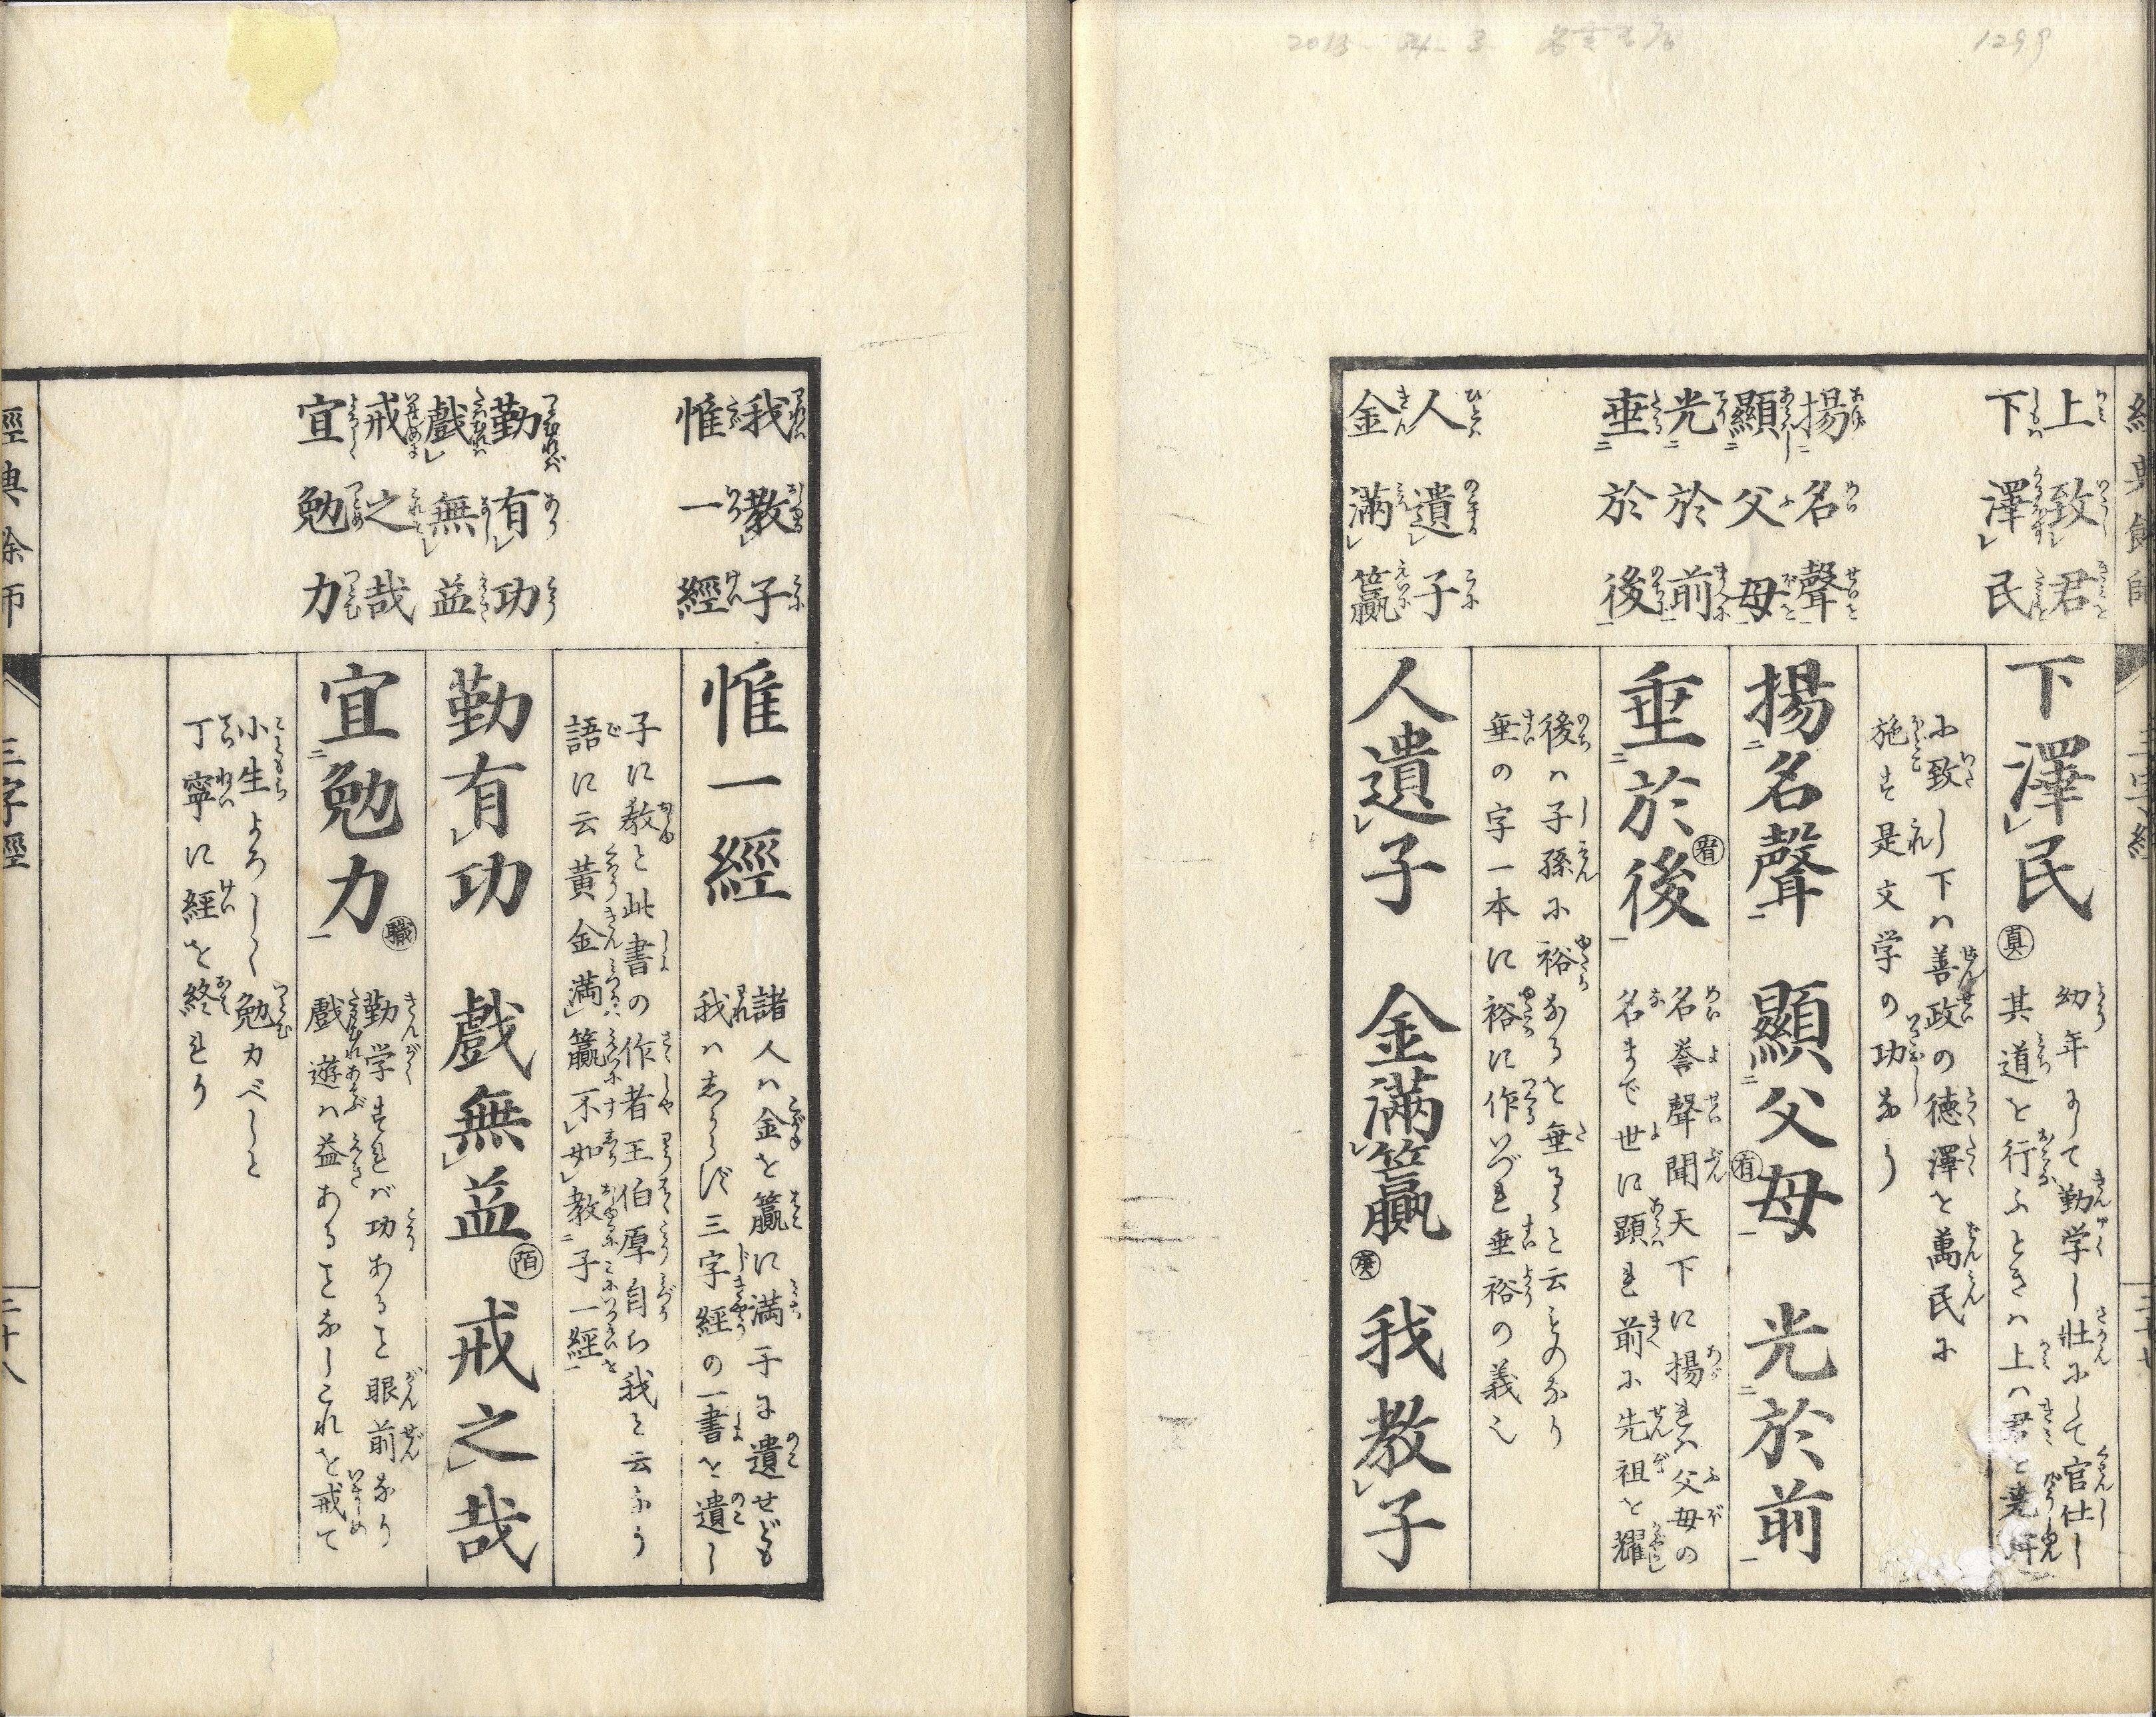 經典餘師
三字經
上致君
下澤民
揚名聲
顯父母
光於前
垂於後
人遺子
金滿籯
下澤民 真
幼年より勤学し壮にして官仕し
其道を行ふときハ上ハ君を堯舜
に致し下ハ善政の徳澤を萬民に
施す是文学の功なり
揚名聲 顯父母 有 光於前
垂於後 宥
名誉聲聞天下に揚れバ父母の
名まで世に顕れ前に先祖を耀
後ハ子孫に裕なるを垂ると云ものなり
垂の字一本に裕に作いづれ垂裕の義也
人遺子 金滿籯 庚 我教子
我教子
惟一經
勤有功
戲無益
戒之哉
宜勉力
惟一經
諸人ハ金を籯に満手に遺せども
我ハしからず三字經の一書を遺し
子に教と此書の作者王伯厚自ら我と云なり
語に云黄金満籯不如教子一經
勤有功 戲無益 陌 戒之哉
宜勉力 職
勤学すれバ功あること眼前なり
戯遊ハ益あることなしこれを戒て
小生よろしく勉力べしと
丁寧に経を終れり
經典餘師
三字經
二十八